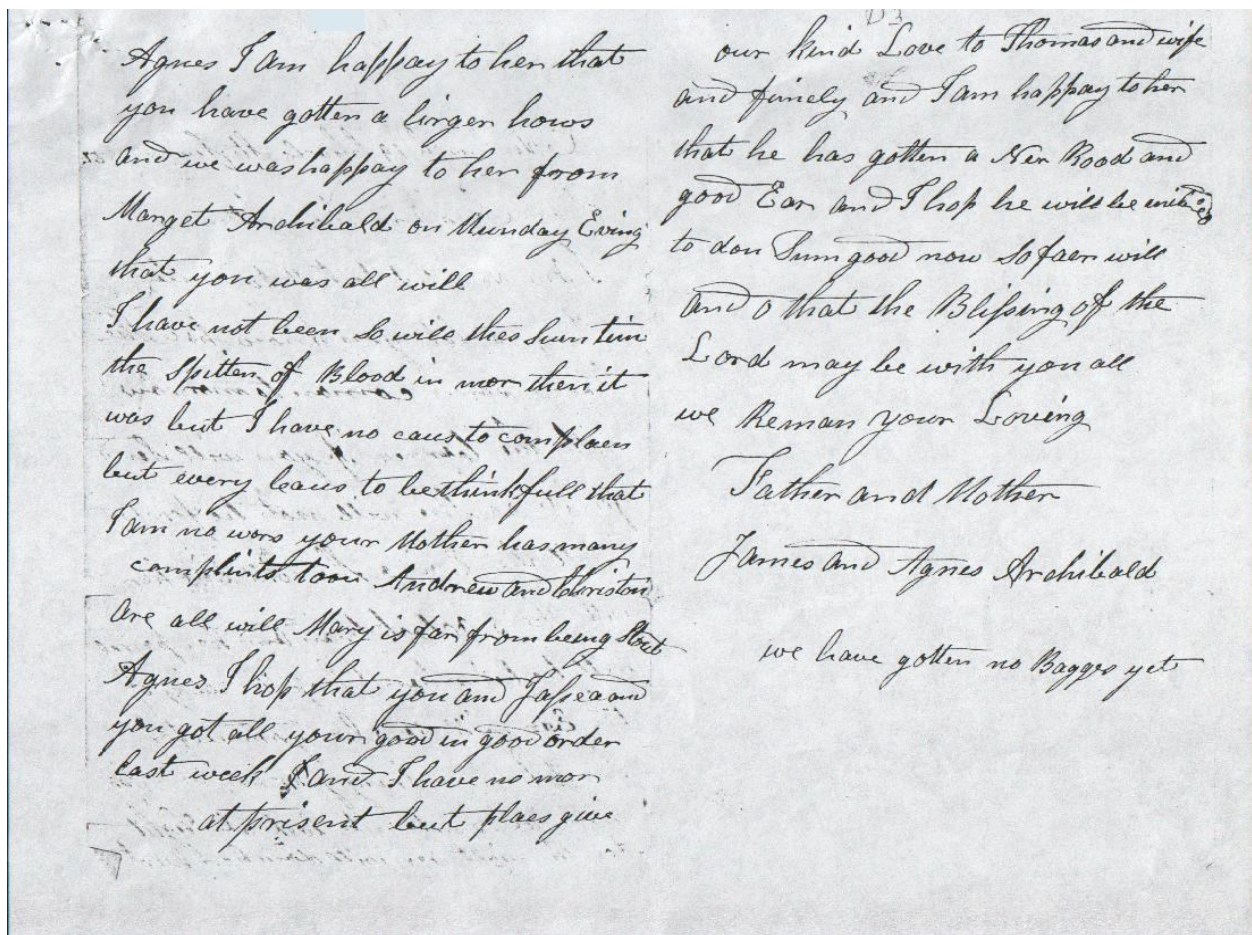 Agnes I am happay to her that
you have gotten a lirger hows
and we was happay to her from
Marget Archibald on Munday Eving
that you was all will
I have not been so will thes sum tim
the spitten of Blood in mor then it
was but I have no caus to complaen
but every caus to be thinkfull that
I am no wors your Mother has many
complints toou Andrew and Christon
are all will Mary is far from being Stout
Agnes I hop that you and and
you got all your good in good order
last week and I have no mor
at prisent but plaes give
D3
our kind Love to Thomas and wife
and fimely and I am happay to her
that he has gotten a New Rood and
good Ear and I hop he will be
to don Sum good now so faer will
and o that the Blissing of the
Lord may be with you all
we Reman your Loving
Father and Mother
James and Agnes Archibald
we have gotten no Bagges yet